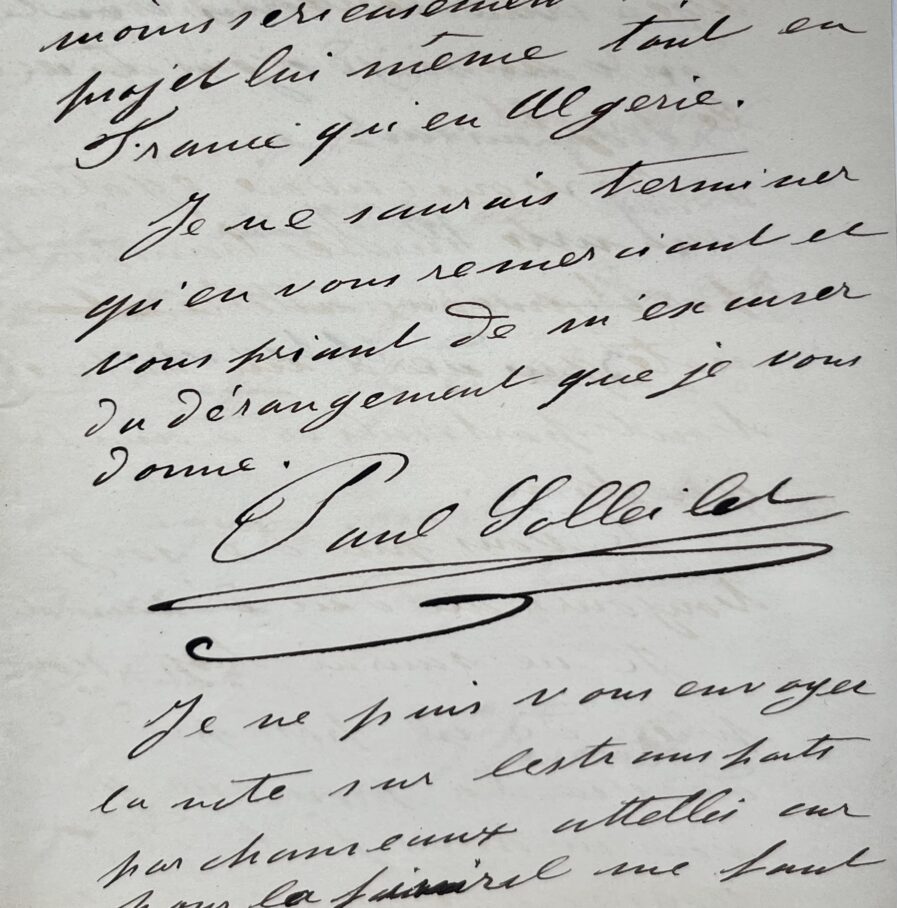 moins serieusement
projet lui même tant en
France qu'en Algerie.
Je ne saurais terminer
qu'en vous remerciant et
vous priant de m'excuser
du dérangement que je vous
donne.
Paul Solleillet
Je ne puis vous envoyer
la note sur les transports
par chameaux attellés car
pour la finir il me faut